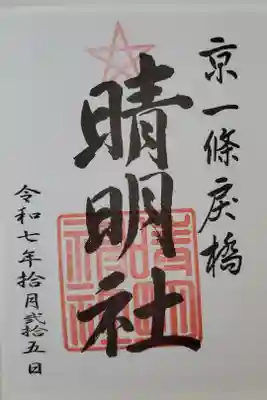 京一條戻橋
晴明社
令和七年拾月弐拾五日